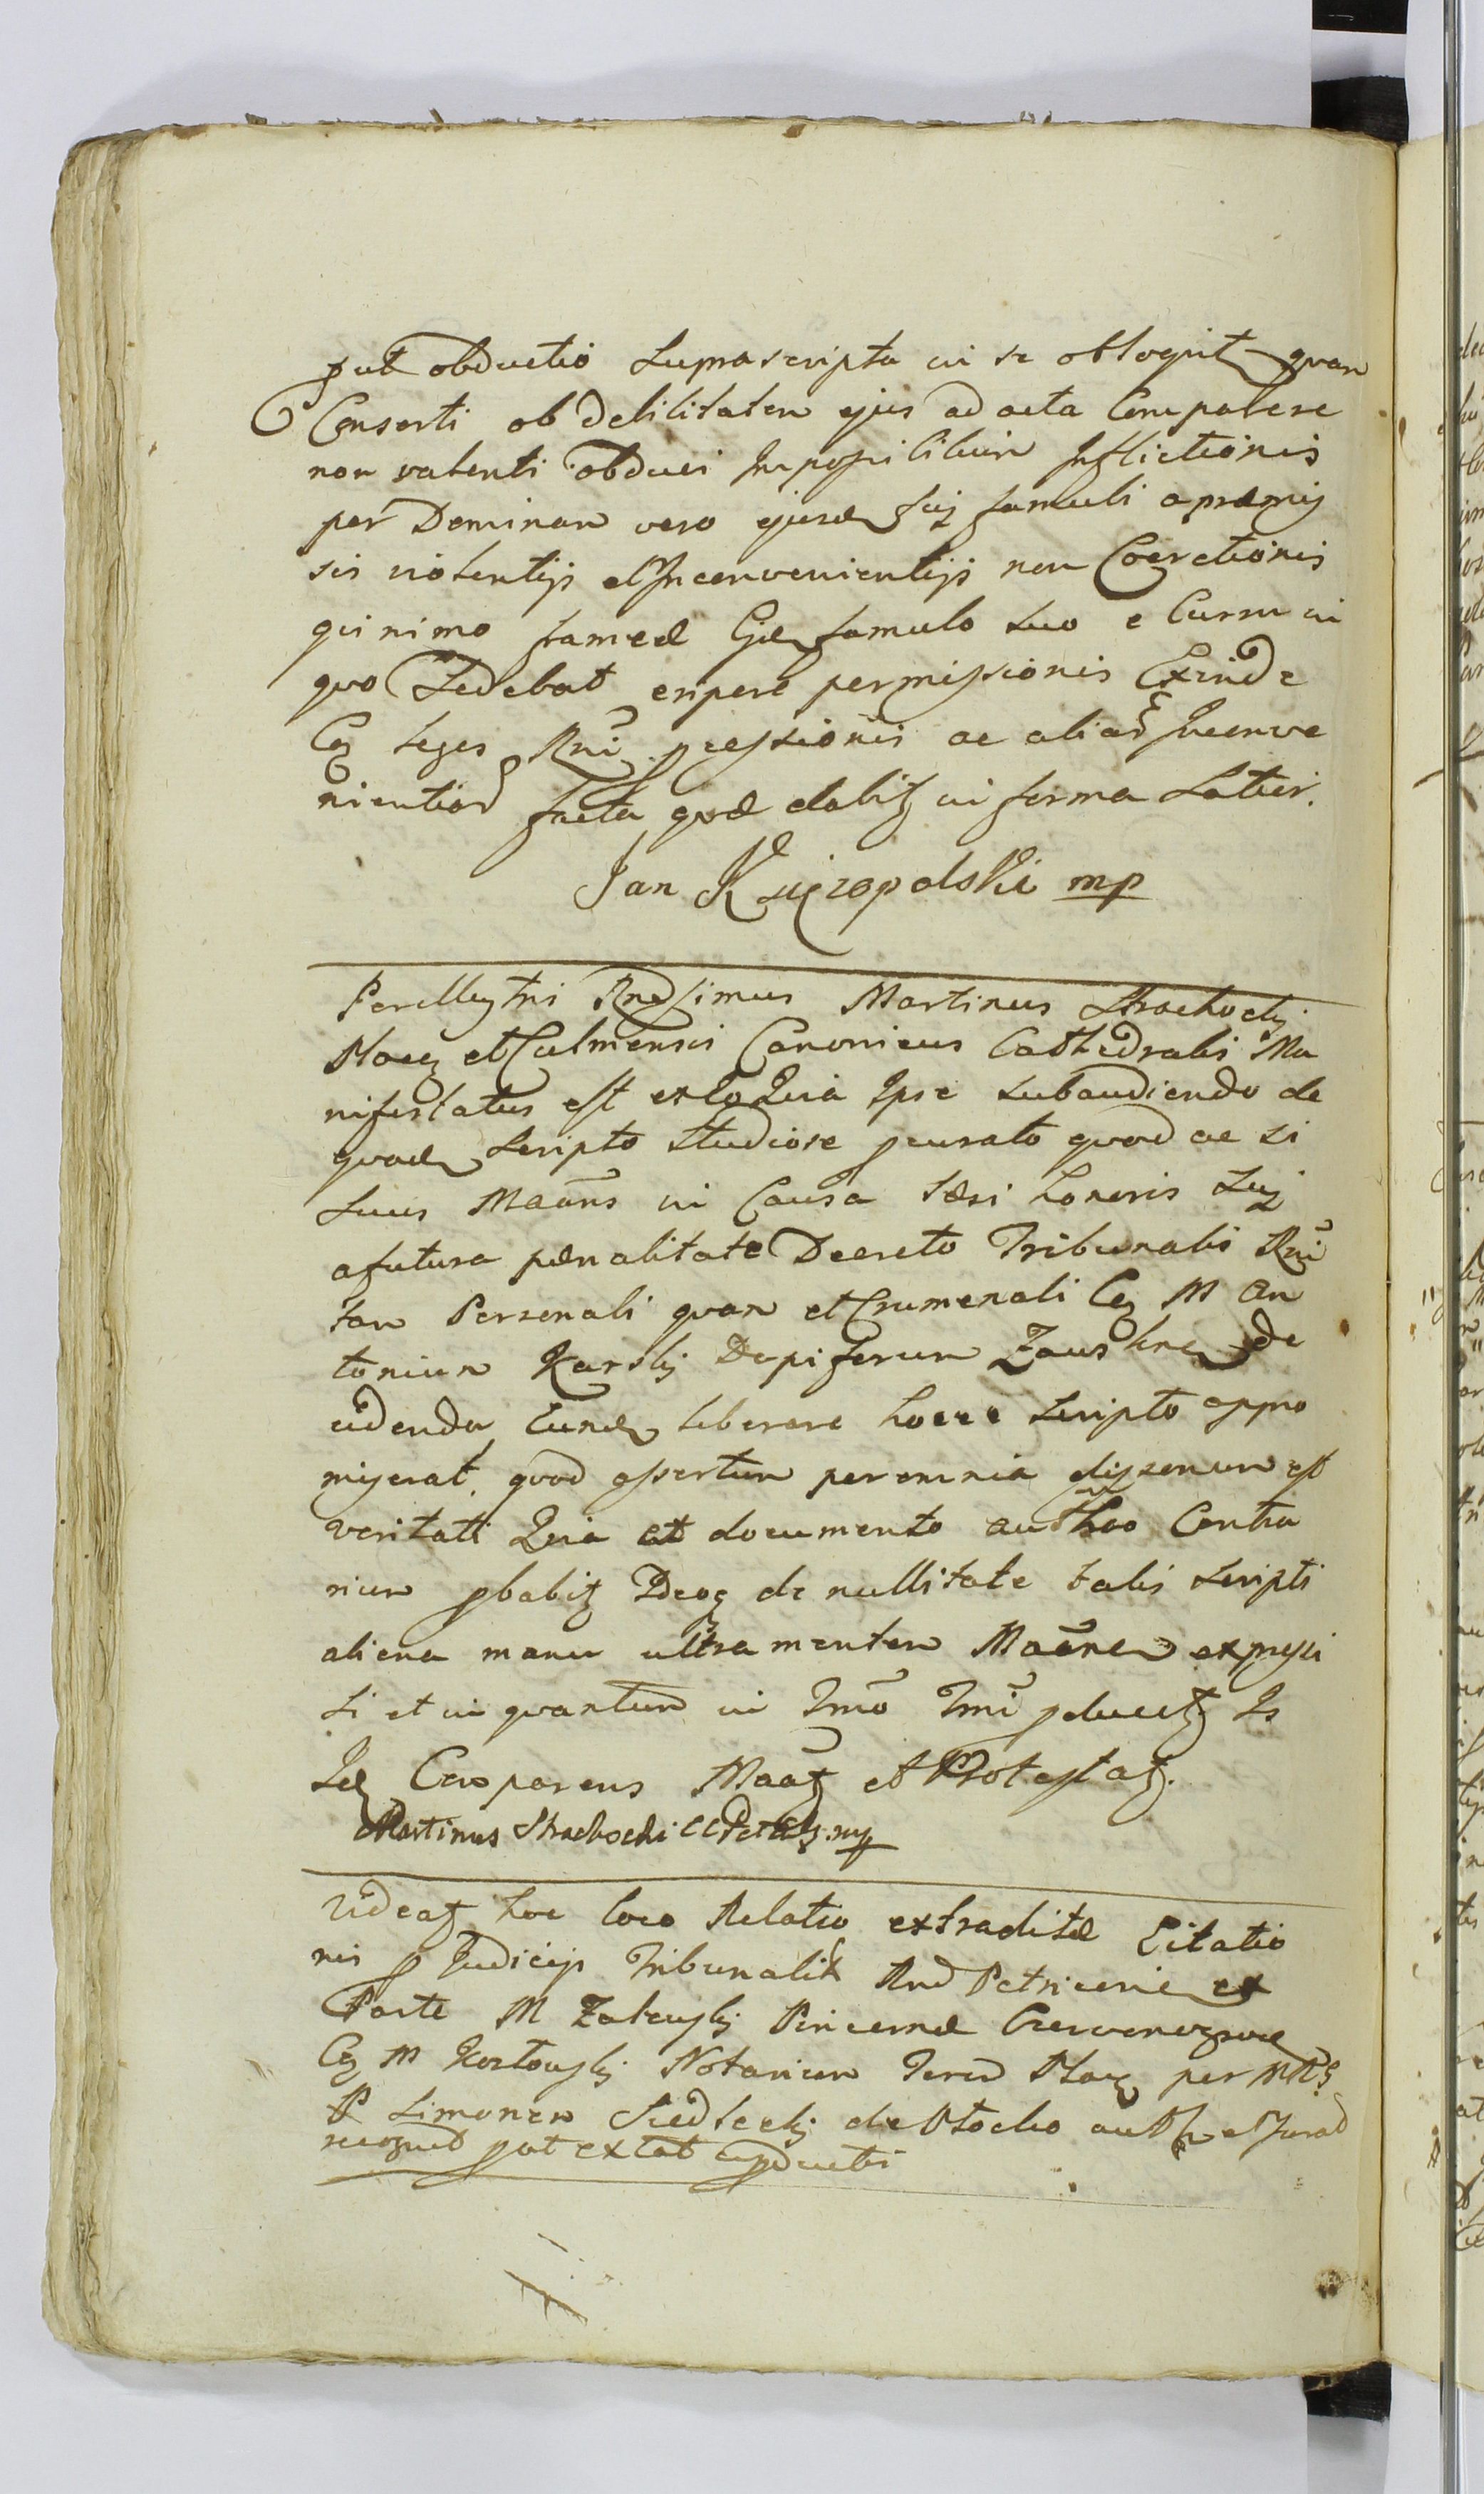 put obductio Supra scripta in se obloqvit qvam
Consorti ob debilitatem ejus ad acta Comparere
non valenti obduci Impossibilium Inflictionis
per Dominam vero ejusd suj famuli apraemis
sis violentijs et Inconvenientijs non Coerctionis
qvinimo famulo suo e Curru in
qvo Sedebat eripere permissionis Exinde
Cq leges Rni pcessionis ac aliar Inconve
nientiar facta qvae dabit in forma Latior.
Jan mp
Perillustri Rndssimus Martinus Strachocki
Plocq et Culmensis Canonicus Cathedralis Ma
nifestatus est ex eo Qvia Ipse subaudiendo de
qvod Scripto studiose pcurato qvod ac si
Suus Maans in Causa laesi honoris Suj
a futura paenalitate Decreto Tribunalis Rni
tam Personali qvam et Crumenali Cq M An
tonium Karskj Dapiferum Zauskrn de
cidenda Eund liberare hocce Scripto appro
miserat, qvod assertum per omnia dissonum est
veritati Qvia et documento autheo Contra
rium pbabit Ideoq de nullitate talis scripti
aliena manu ultra mentem Maane expressi
Si et in qvantum in Imo Imi pducet Is
Id Comparens Maat et Protestat.
Martinus Strachocki CCPet mp
Videat hoc loco Relatio extraditae Citatio
nis p Judicijs Tribunalib Rnd Petricovien ex
Parte M Zaleuskj Pincernae
Cq M Kostouskj Notarium Terrm Plocq per MRS
P Simonem Siedleckj de Plocko auth et Jurad
recognit put extat